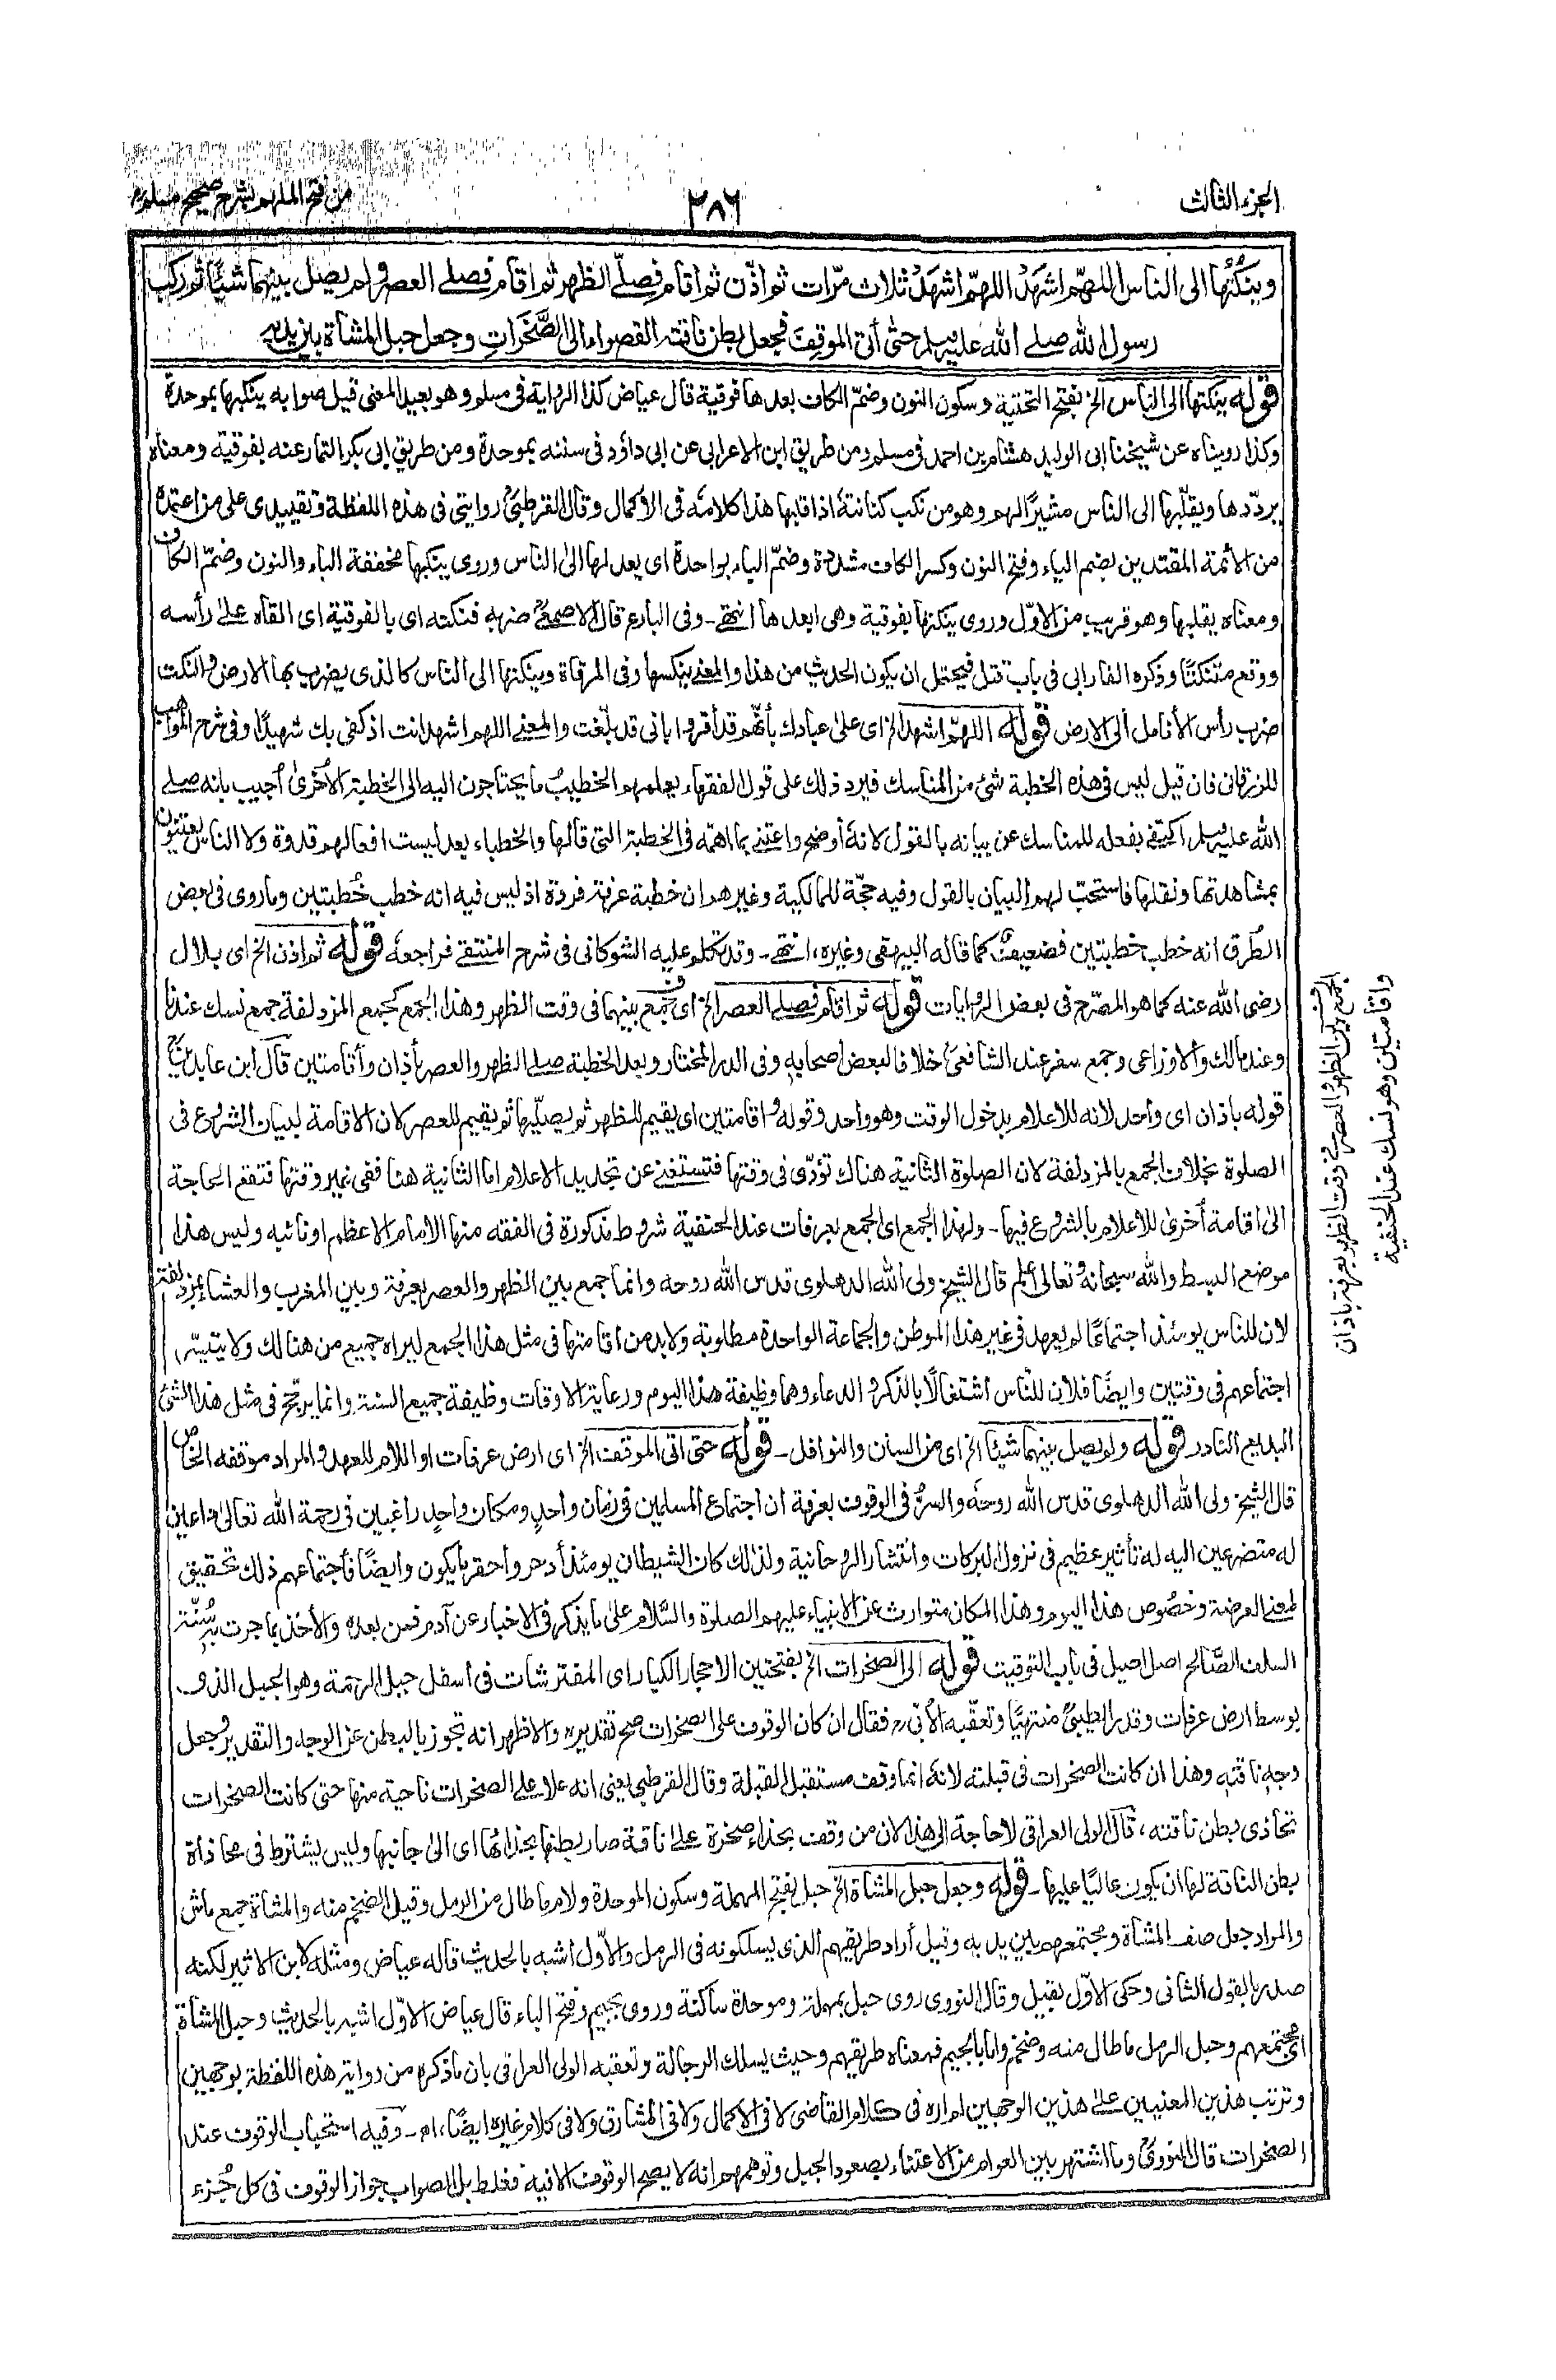 الجزء الثالث
٢٨٦
من فتح الملهم بشرح صحيح مسلم
وينكتها الى الناس اللهمّ اشهَدْ اللهمّ اشهَدْ ثلاث مرّات ثم اذّن ثم اقام فصلّے الظهر ثم اقام فصلے العصر ولم يصل بينهما شيئًا ثم ركب
رسول الله صلے الله عليه وسلم حتى أتى الموقف فجعل بطن ناقته القصواء الى الصَّخَرَاتِ وجعل حبل المشاة بين يديه
قوله ينكتها الى الناس الخ بفتح التحتية وسكون النون وضمّ الكاف بعدها فوقية قال عياض كذا الرواية فى مسلم وهو بعيد المعنى قيل صوابه ينكبها بموحدة
وكذا رويناه عن شيخنا ابى الوليد هشام بن احمد فى مسلم ومن طريق ابن الاعرابى عن ابى داؤد فى سننه بموحدة ومن طريق ابى بكر التمار عنه بفوقية ومعناه
يردّدها ويقلّبها الى الناس مشيرًا لهم وهو من نكب كنانته اذا قلبها هذا كلامه فى الاكمال وقال القرطبى روايتى فى هذه اللفظة وتقييدى على من اعتمده
من الأئمة المقتدين بضم الياء وفتح النون وكسر الكاف مشددة وضمّ الباء بواحدة اى يعدلها الى الناس وروى ينكبها مخففة الباء والنون وضمّ الكاف
ومعناه يقلبها وهو قريب من الاوّل وروى ينكتها بفوقية وهى ابعدها انتهے - وفى البارع قال الاصمعى ضربه فنكته اى بالفوقية اى القاه على رأسه
ووقع متنكتًا وذكره الفارابى فى باب قتل فيحتمل ان يكون الحديث من هذا والمعنے ينكسها وفى المرقاة وينكتها الى الناس كالذى يضرب بها الارض والنكت
ضرب رأس الأنامل الى الارض قوله اللهمّ اشهد الخ اى على عبادك بأنهم قد أقروا بانى قد بلّغت والمعنے اللهم اشهد انت اذ كفى بك شهيدًا وفى شرح المواهب
للزرقانى فان قيل ليس فى هذه الخطبة شئ من المناسك فيرد ذلك على قول الفقهاء يعلمهم الخطيب ما يحتاجون اليه الى الخطبة الأخرى أجيب بانه صلے
الله عليه وسلم اكتفے بفعله للمناسك عن بيانه بالقول لانه أوضح واعتنے بما اهمّه فى الخطبة التى قالها والخطباء بعد ليست افعالهم قدوة ولا الناس يعتنون
بمشاهدتها ونقلها فاستحبّ لهم البيان بالقول وفيه حجّة للمالكية وغيرهم ان خطبة عرفة فردة اذ ليس فيه انه خطب خُطبتين وما روى فى بعض
الطُرق انه خطب خطبتين فضعيف كما قاله البيهقى وغيره، انتهے - وقد تكلم عليه الشوكانى فى شرح المنتقے فراجعه قوله ثم اذن الخ اى بلال
رضى الله عنه كما هو المصرّح فى بعض الروايات قوله ثم اقام فصلے العصر الخ اى جَمع بينهما فى وقت الظهر وهذا الجمع كجمع المزدلفة جمع نسك عندنا
وعند مالك والاوزاعى وجمع سفر عند الشافعى خلافا لبعض اصحابه وفى الدر المختار وبعد الخطبة صلے الظهر والعصر بأذان وأقامتين قال ابن عابدين
قوله باذان اى واحد لانه للاعلام بدخول الوقت وهو واحد وقوله واقامتين اى يقيم للظهر ثم يصليها ثم يقيم للعصر لان الاقامة لبيان الشروع فى
الصلوة بخلاف الجمع بالمزدلفة لان الصلوة الثانية هناك تؤدّى فى وقتها فتستغنے عن تجديد الاعلام اما الثانية هنا ففى غير وقتها فتقع الحاجة
الى اقامة أخرى للاعلام بالشروع فيها - ولهذا الجمع اى الجمع بعرفات عند الحنفية شروط مذكورة فى الفقه منها الامام الاعظم او نائبه وليس هذا
موضع البسط والله سبحانه وتعالى أعلم قال الشيخ ولى الله الدهلوى قدس الله روحه وانما جمع بين الظهر والعصر بعرفة وبين المغرب والعشاء بمزدلفة
لان للناس يومئذ اجتماعًا لم يعهد فى غير هذا الموطن والجماعة الواحدة مطلوبة ولا بد من اقامتها فى مثل هذا الجمع ليراه جميع من هنالك ولا يتيسّر
اجتماعهم فى وقتين وايضًا فلان للناس اشتغالًا بالذكر والدعاء وهما وظيفة هذا اليوم ورعاية الاوقات وظيفة جميع السنة وانما يرجّح فى مثل هذا الشئ
البديع النادر قوله ولم يصل بينهما شيئا الخ اى من السنن والنوافل - قوله حتى اتى الموقف الخ اى ارض عرفات او اللام للعهد والمراد موقفه الخاص
قال الشيخ ولى الله الدهلوى قدس الله روحه والسرّ فى الوقوف بعرفة ان اجتماع المسلمين فى زمان واحد ومكان واحد راغبين فى رحمة الله تعالى داعين
له متضرعين اليه له تأثير عظيم فى نزول البركات وانتشار الروحانية ولذلك كان الشيطان يومئذ أدحر واحقر ما يكون وايضًا فأجتماعهم ذلك تحقيق
لمعنے العرضة وخصوص هذا اليوم وهذا المكان متوارث عن الانبياء عليهم الصلوة والسّلام على ما يذكر فى الاخبار عن آدم فمن بعده والأخذ بما جرت به سُنّة
السلف الصّالح اصل اصيل فى باب التوقيت قوله الى الصخرات الخ بفتحتين الاحجار الكبار اى المفترشات فى أسفل جبل الرحمة وهو الجبل الذى
بوسط ارض عرفات وقدر الطيبى منتهيًا وتعقّبه الأبى رح فقال ان كان الوقوف على الصخرات صح تقديره والاظهر انه تجوز بالبطن عن الوجه والتقدير وجعل
وجه ناقته وهذا ان كانت الصخرات فى قبلته لانه انما وقف مستقبل القبلة وقال القرطبى يعنى انه علا على الصخرات ناحية منها حتى كانت الصخرات
تحاذى بطن ناقته، قال الولى العراقى لا حاجة الى هذا لان من وقف بحذاء صخرة على ناقة صار بطنها بحذائها اى الى جانبها وليس يشترط فى محاذاة
بطن الناقة لها ان يكون عاليًا عليها - قوله وجعل حبل المشاة الخ حبل بفتح المهملة وسكون الموحدة ولام ما طال من الرمل وقيل الضخم منه والمشاة جمع ماش
والمراد جعل صف المشاة ومجتمعهم بين يديه وقيل أراد طريقهم الذى يسلكونه فى الرمل والاوّل اشبه بالحديث قاله عياض ومثله لابن الاثير لكنه
صدر بالقول الثانى وحكى الاوّل بقيل وقال النووى روى حبل بمهملة وموحدة ساكنة وروى بجيم وفتح الباء قال عياض الاوّل اشبه بالحديث وحبل المشاة
اى مجتمعهم وحبل الرمل ما طال منه وضخم واما بالجيم فمعناه طريقهم وحيث يسلك الرجالة وتعقبه الولى العراقى بان ما ذكره من رواية هذه اللفظة بوجهين
وترتب هذين المعنيين على هذين الوجهين لم اره فى كلام القاضى لا فى الاكمال ولا فى المشارق ولا فى كلام غيره ايضًا، اھ - وفيه استحباب الوقوف عند
الصخرات قال النووى وما اشتهر بين العوام من الاعتناء بصعود الجبل وتوهمهم انه لا يصح الوقوف الا فيه فغلط بل الصواب جواز الوقوف فى كل جُزء
الجمع بين الظهر والعصر فى وقت الظهر بعرفة باذان
واقامتين وهو نسك عند الحنفية